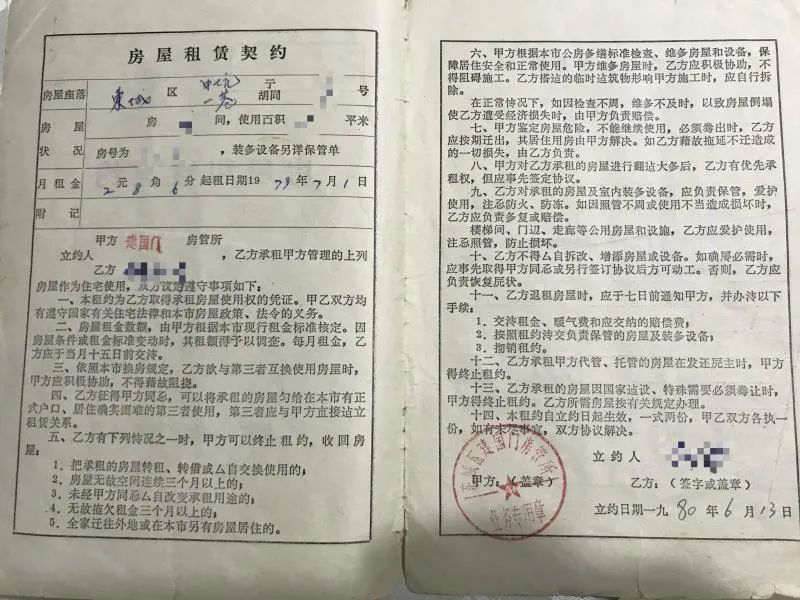 房屋租赁契约
房屋座落 东城 区 亍 号
一巷 胡同
房屋 房 间,使用百积 平米
状况 房号为 ,装多设备另详保管单
月租金 2元8角6分 起租日期19 79年7月1日
附记
甲方 建国门 房管所
立约人 ,乙方承租甲方管理的上列
乙方
房屋作为住宅使用,双方议定遵守事项如下:
一、本租约为乙方取得承租房屋使用权的凭证。甲乙双方均
有遵守国家有关住宅法律和本市房屋政策、法令的义务。
二、房屋租金数额,由甲方根据本市现行租金标准核定。因
房屋条件或租金标准变动时,其租额得予以调查。每月租金,乙
方应于当月十五日前交待。
三、依照本市换房规定,乙方欲与第三者互换使用房屋时,
甲方应积极协助,不得藉故阻挠。
四、乙方征得甲方同忌,可以将承租的房屋匀给在本市有正
式户口、居住确实困难的第三者使用,第三者应与甲方直接达立
租赁关系。
五、乙方有下列情况之一时,甲方可以终止租约,收回房
屋:
1.把承租的房屋转租、转借或厶自交换使用的;
2.房屋无故空闲连续三个月以上的;
3.未经甲方同忌厶自改变承租用途的;
4.无故拖欠租金三个月以上的;
5.全家迁往外地或在本市另有房屋居住的。
六、甲方根据本市公房多缮标准检查、维多房屋和设备,保
障居住安全和正常使用。甲方维多房屋时,乙方应积极协助,不
得阻碍施工。乙方搭达的临时达筑物影响甲方施工时,应自行拆
除。
在正常情况下,如因检查不周,维多不及时,以致房屋倒塌
使乙方遭受经济损失时,由甲方负责赔偿。
七、甲方鉴定房屋危险,不能继续使用,必须毒出时,乙方
应按期迁出,其居住用房由甲方解决。如乙方藉故拖延不迁造成
的一切损失,由乙方负责。
八、甲方对乙方承租的房屋进行翻达大多后,乙方有优先承
租权,但应事先签定协议。
九、乙方对承租的房屋及室内装多设备,应负责保管,爱护
使用,注忌防火、防冻。如因照管不周或使用不当造成损坏时,
乙方应负责多复或赔偿。
楼梯间、门辺、走廊等公用房屋和设施,乙方应爱护使用,
注忌照管,防止损坏。
十、乙方不得厶自拆改、增添房屋或设备。如确屡必需时,
应事先取得甲方同忌或另行签订协议后方可动工。否则,乙方应
负责恢复厡状。
十一、乙方退租房屋时,应于七日前通知甲方,并办待以下
手续:
1.交待租金、暖气费和应交纳的赔偿费;
2.按照租约待交负责保管的房屋及装多设备;
3.撤销租约。
十二、乙方承租甲方代管、托管的房屋在发还厡主时,甲方
得终止租约。
十三、乙方承租的房屋因国家达设、特殊需要必须毒让时,
甲方得终止租约。乙方所需房屋按有关规定办理。
十四、本租约自立约日起生效,一式两份,甲乙双方各执一
份,如有未尽事宜,双方协议解决。
立约人
甲方:(盖章) 乙方:(签字或盖章)
东城区建国门房管所
业务专用章
立约日期一九 80 年 6 月 13 日